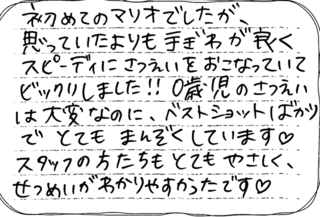 初めてのマリオでしたが、
思っていたよりも手ぎわが良く
スピーディにさつえいをおこなっていて
ビックリしました!! 0歳児のさつえい
は大変なのに、ベストショットばかり
で とても まんぞくしています♡
スタッフの方たちもとてもやさしく、
せつめいがわかりやすかったです♡